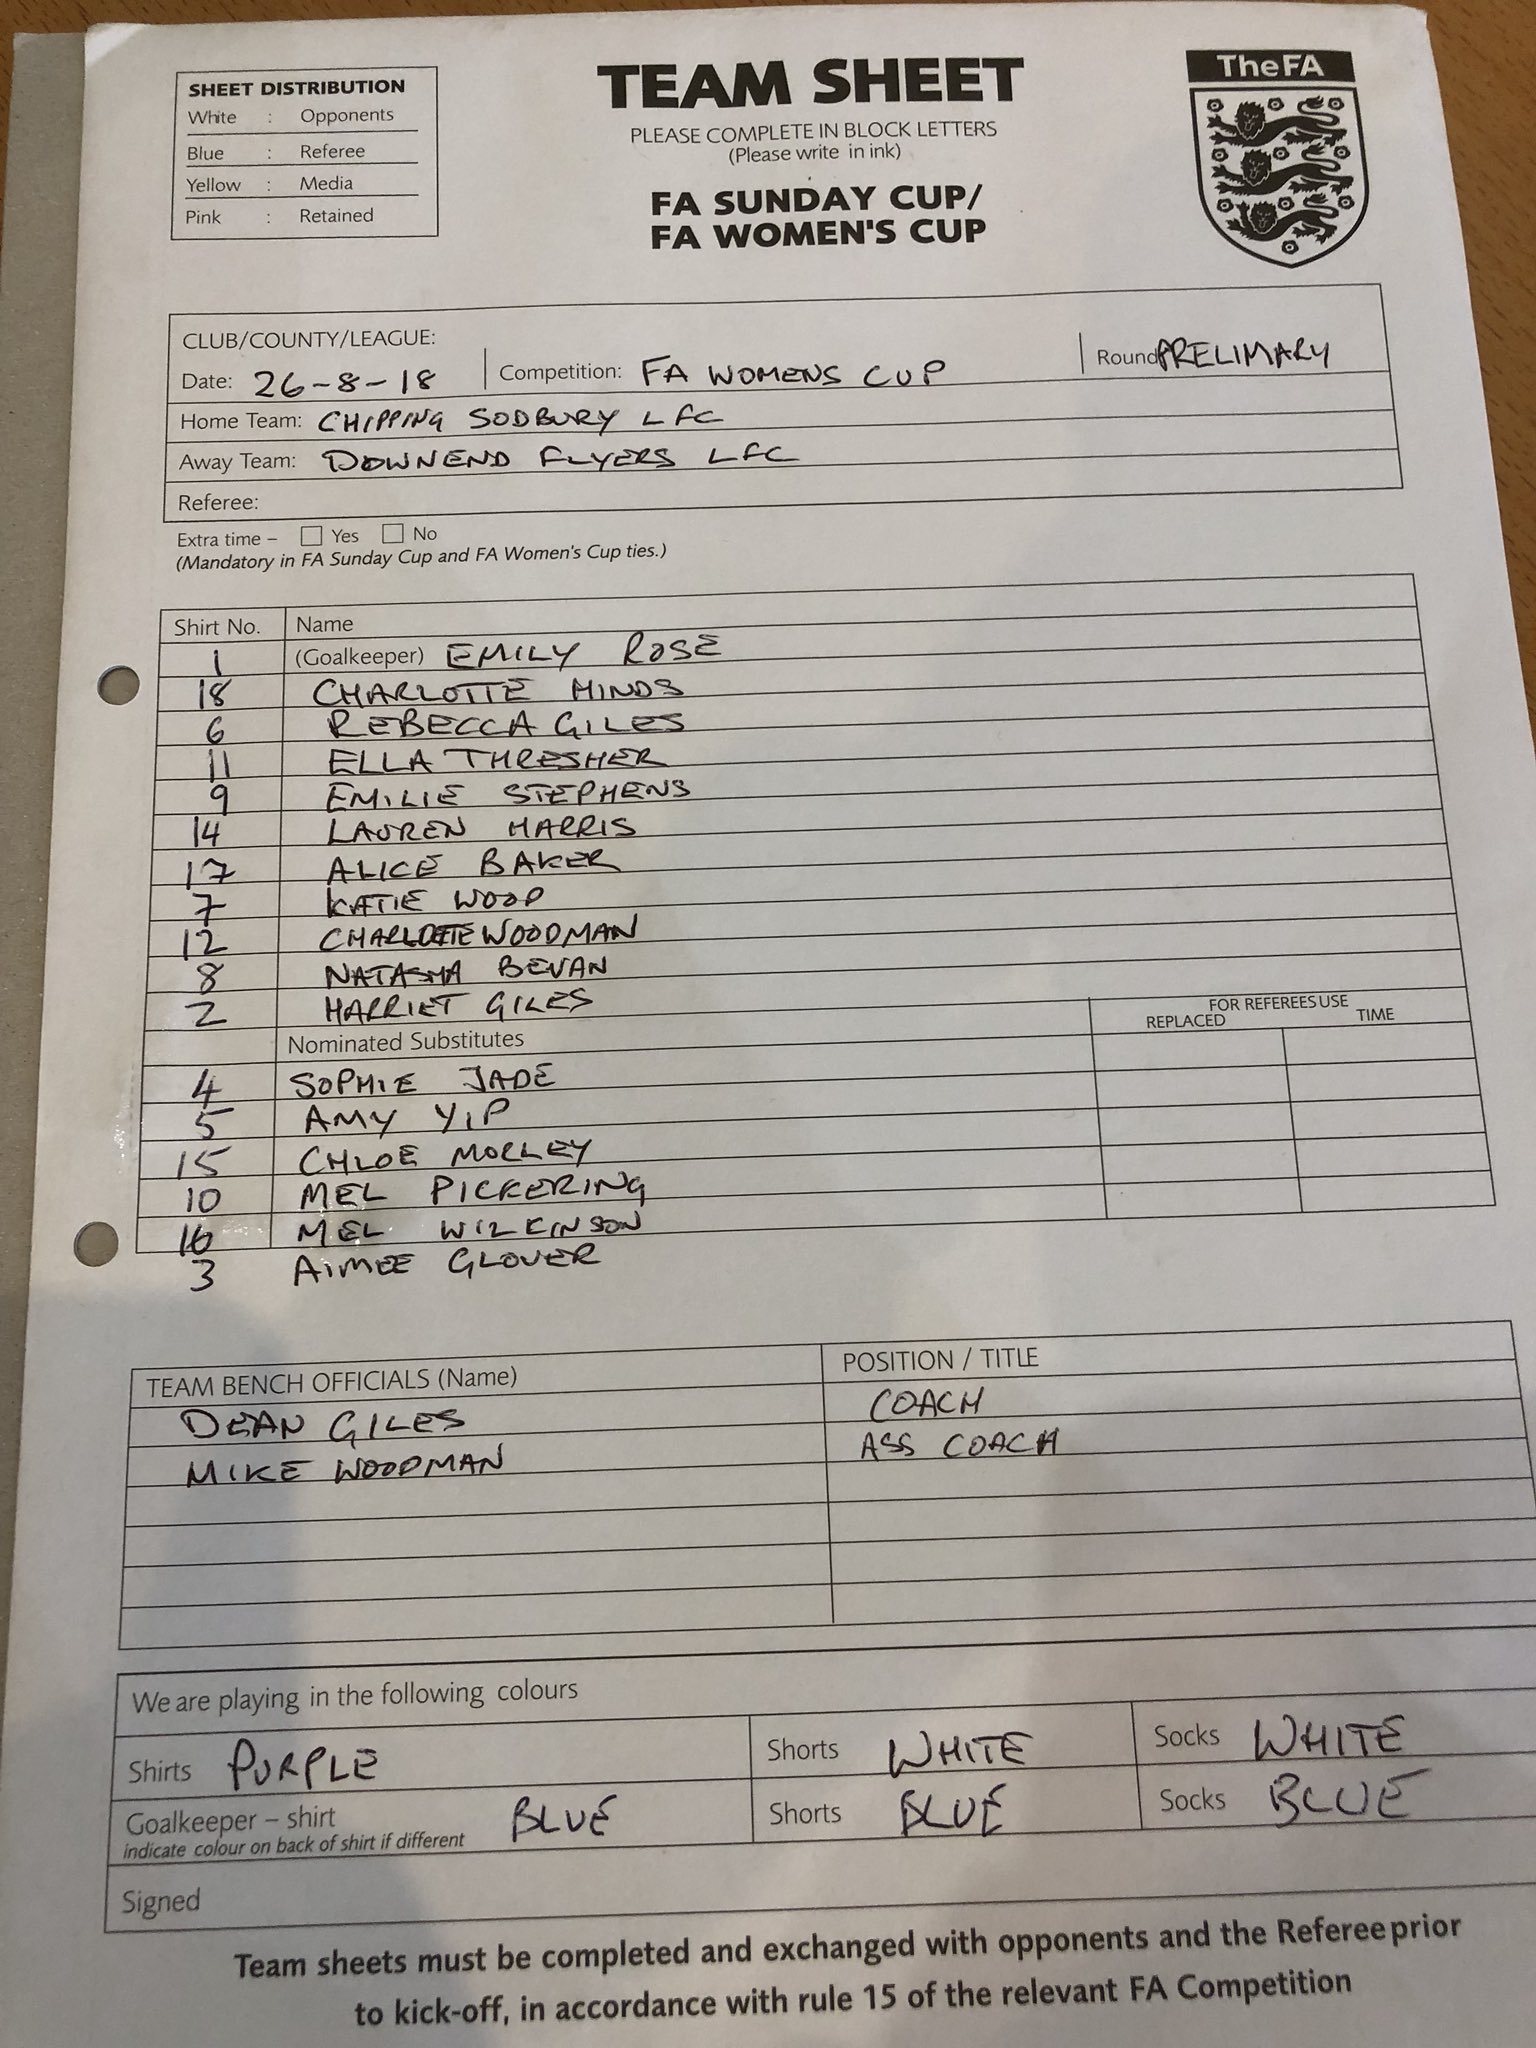 SHEET DISTRIBUTION
White : Opponents
Blue : Referee
Yellow : Media
Pink : Retained
TEAM SHEET
PLEASE COMPLETE IN BLOCK LETTERS
(Please write in ink)
FA SUNDAY CUP/
FA WOMEN'S CUP
The FA
CLUB/COUNTY/LEAGUE:
Date: 26-8-18 Competition: FA WOMENS CUP Round PRELIMARY
Home Team: CHIPPING SODBURY LFC
Away Team: DOWNEND FLYERS LFC
Referee:
Extra time – Yes No
(Mandatory in FA Sunday Cup and FA Women's Cup ties.)
Shirt No. Name
1 (Goalkeeper) EMILY ROSE
18 CHARLOTTE HINDS
6 REBECCA GILES
11 ELLA THRESHER
9 EMILIE STEPHENS
14 LAUREN HARRIS
17 ALICE BAKER
7 KATIE WOOD
12 CHARLOTTE WOODMAN
8 NATASHA BEVAN
2 HARRIET GILES
FOR REFEREES USE
REPLACED TIME
Nominated Substitutes
4 SOPHIE JADE
5 AMY YIP
15 CHLOE MORLEY
10 MEL PICKERING
16 MEL WILKINSON
3 AIMEE GLOVER
TEAM BENCH OFFICIALS (Name) POSITION / TITLE
DEAN GILES COACH
MIKE WOODMAN ASS COACH
We are playing in the following colours
Shirts PURPLE Shorts WHITE Socks WHITE
Goalkeeper – shirt BLUE Shorts BLUE Socks BLUE
indicate colour on back of shirt if different
Signed
Team sheets must be completed and exchanged with opponents and the Referee prior
to kick-off, in accordance with rule 15 of the relevant FA Competition